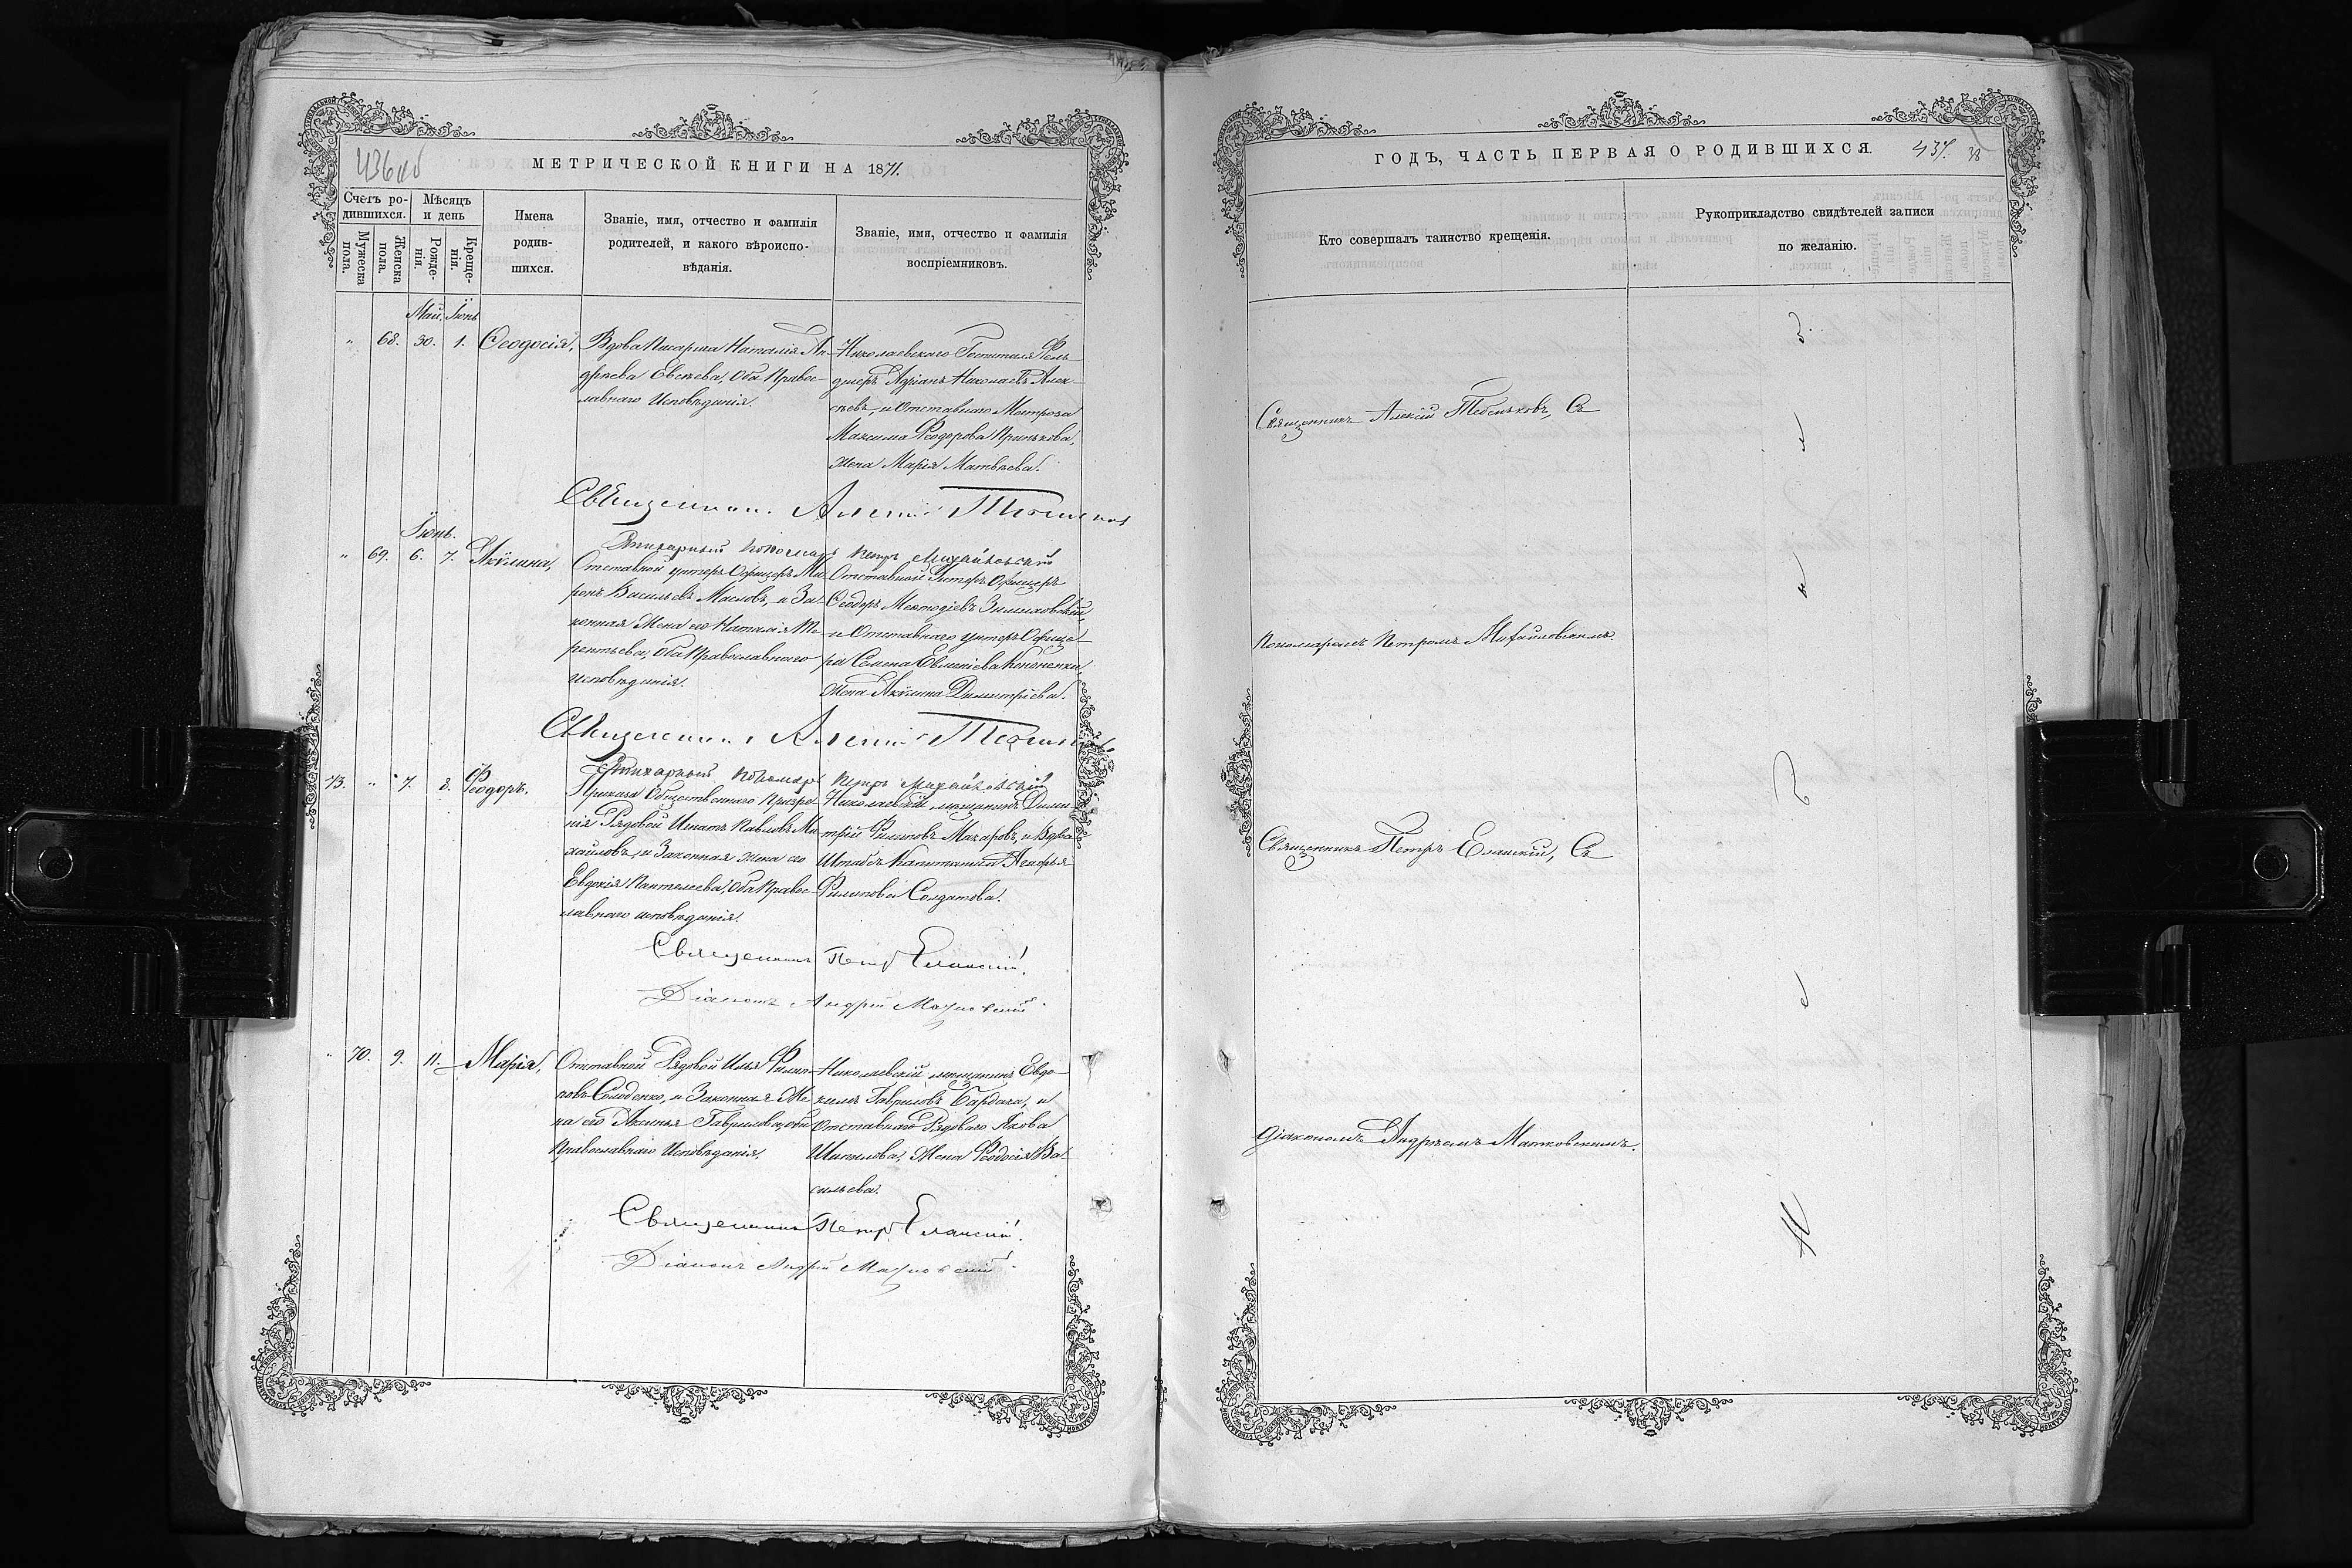 436 об
МЕТРИЧЕСКОЙ КНИГИ НА 1871.
Счетъ ро-
дившихся.
Мужеска
пола.
Женска
пола.
Мѣсяцъ
и день
Рожде-
нія.
Креще-
нія.
Имена
родив-
шихся.
Званіе, имя, отчество и фамилія
родителей, и какого вѣроиспо-
вѣданія.
Званіе, имя, отчество и фамилія
воспріемниковъ.
Май. Іюнь
" 68. 30. 1. Ѳеодосія,
Вдова Писариха Наталія Ан-
дреева Евсѣева, Оба Правос-
лавнаго Исповѣданія.
Николаевскаго Госпиталя Фель-
дшеръ Адріанъ Николаевъ Алек-
сѣевъ, и Отставнаго Матроза
Максима Ѳеодорова
жена Марія Матвѣева.
Священник Алексій
Стихарный пономарь Петръ Михайловскій
Іюнь.
" 69. 6. 7. Акулина,
Отставной унтеръ Офицеръ Ми-
ронъ Васильевъ Масловъ, и За-
конная Жена его Наталія Те-
рентьева, Оба Православнаго
исповѣданія.
Отставной Унтеръ Офицеръ
Ѳеодоръ Меѳтодіевъ
и Отставнаго унтеръ Офице-
ра Семена Евменіева Кононенка,
жена Акулина Димитріева.
Священник Алексій
Стихарный пономарь Петръ Михайловскій
73. " 7. 8. Ѳеодоръ.
Приказа Общественнаго Призрѣ-
нія Рядовой Игнатъ Павловъ Ми-
хайловъ, и Законная жена его
Евдокія Пантелеева, Оба Правос-
лавнаго исповѣданія.
Николаевскій мѣщанинъ Дими-
трій Филиповъ Макаровъ, и Вдова
Штабсъ Капитанша
Филипова Солдатова.
Священникъ Петр Еланскій.
Діаконъ Андрей Матковскій
" 70. 9. 11. Марія,
Отставной Рядовой Илья Филип-
повъ Солоденко, и Законная Же-
на его Аксинья Гаврилова, оба
Православнаго Исповѣданія.
Николаевскій мѣщанинъ Евдо-
кимъ Гавриловъ Бардакъ, и
Отставнаго Рядоваго Якова
Шипилова, Жена Ѳеодосія Ва-
сильева.
Священникъ Петр Еланскій.
Діаконъ Андрей Матковскій
ГОДЪ, ЧАСТЬ ПЕРВАЯ О РОДИВШИХСЯ.
437. 38
Кто совершалъ таинство крещенія.
Рукоприкладство свидѣтелей записи
по желанію.
Священникъ Алексій Тебеньковъ, Съ
Пономаремъ Петромъ Михайловскимъ.
Священникъ Петръ Еланскій, Съ
Діакономъ Андреемъ Матковскимъ.